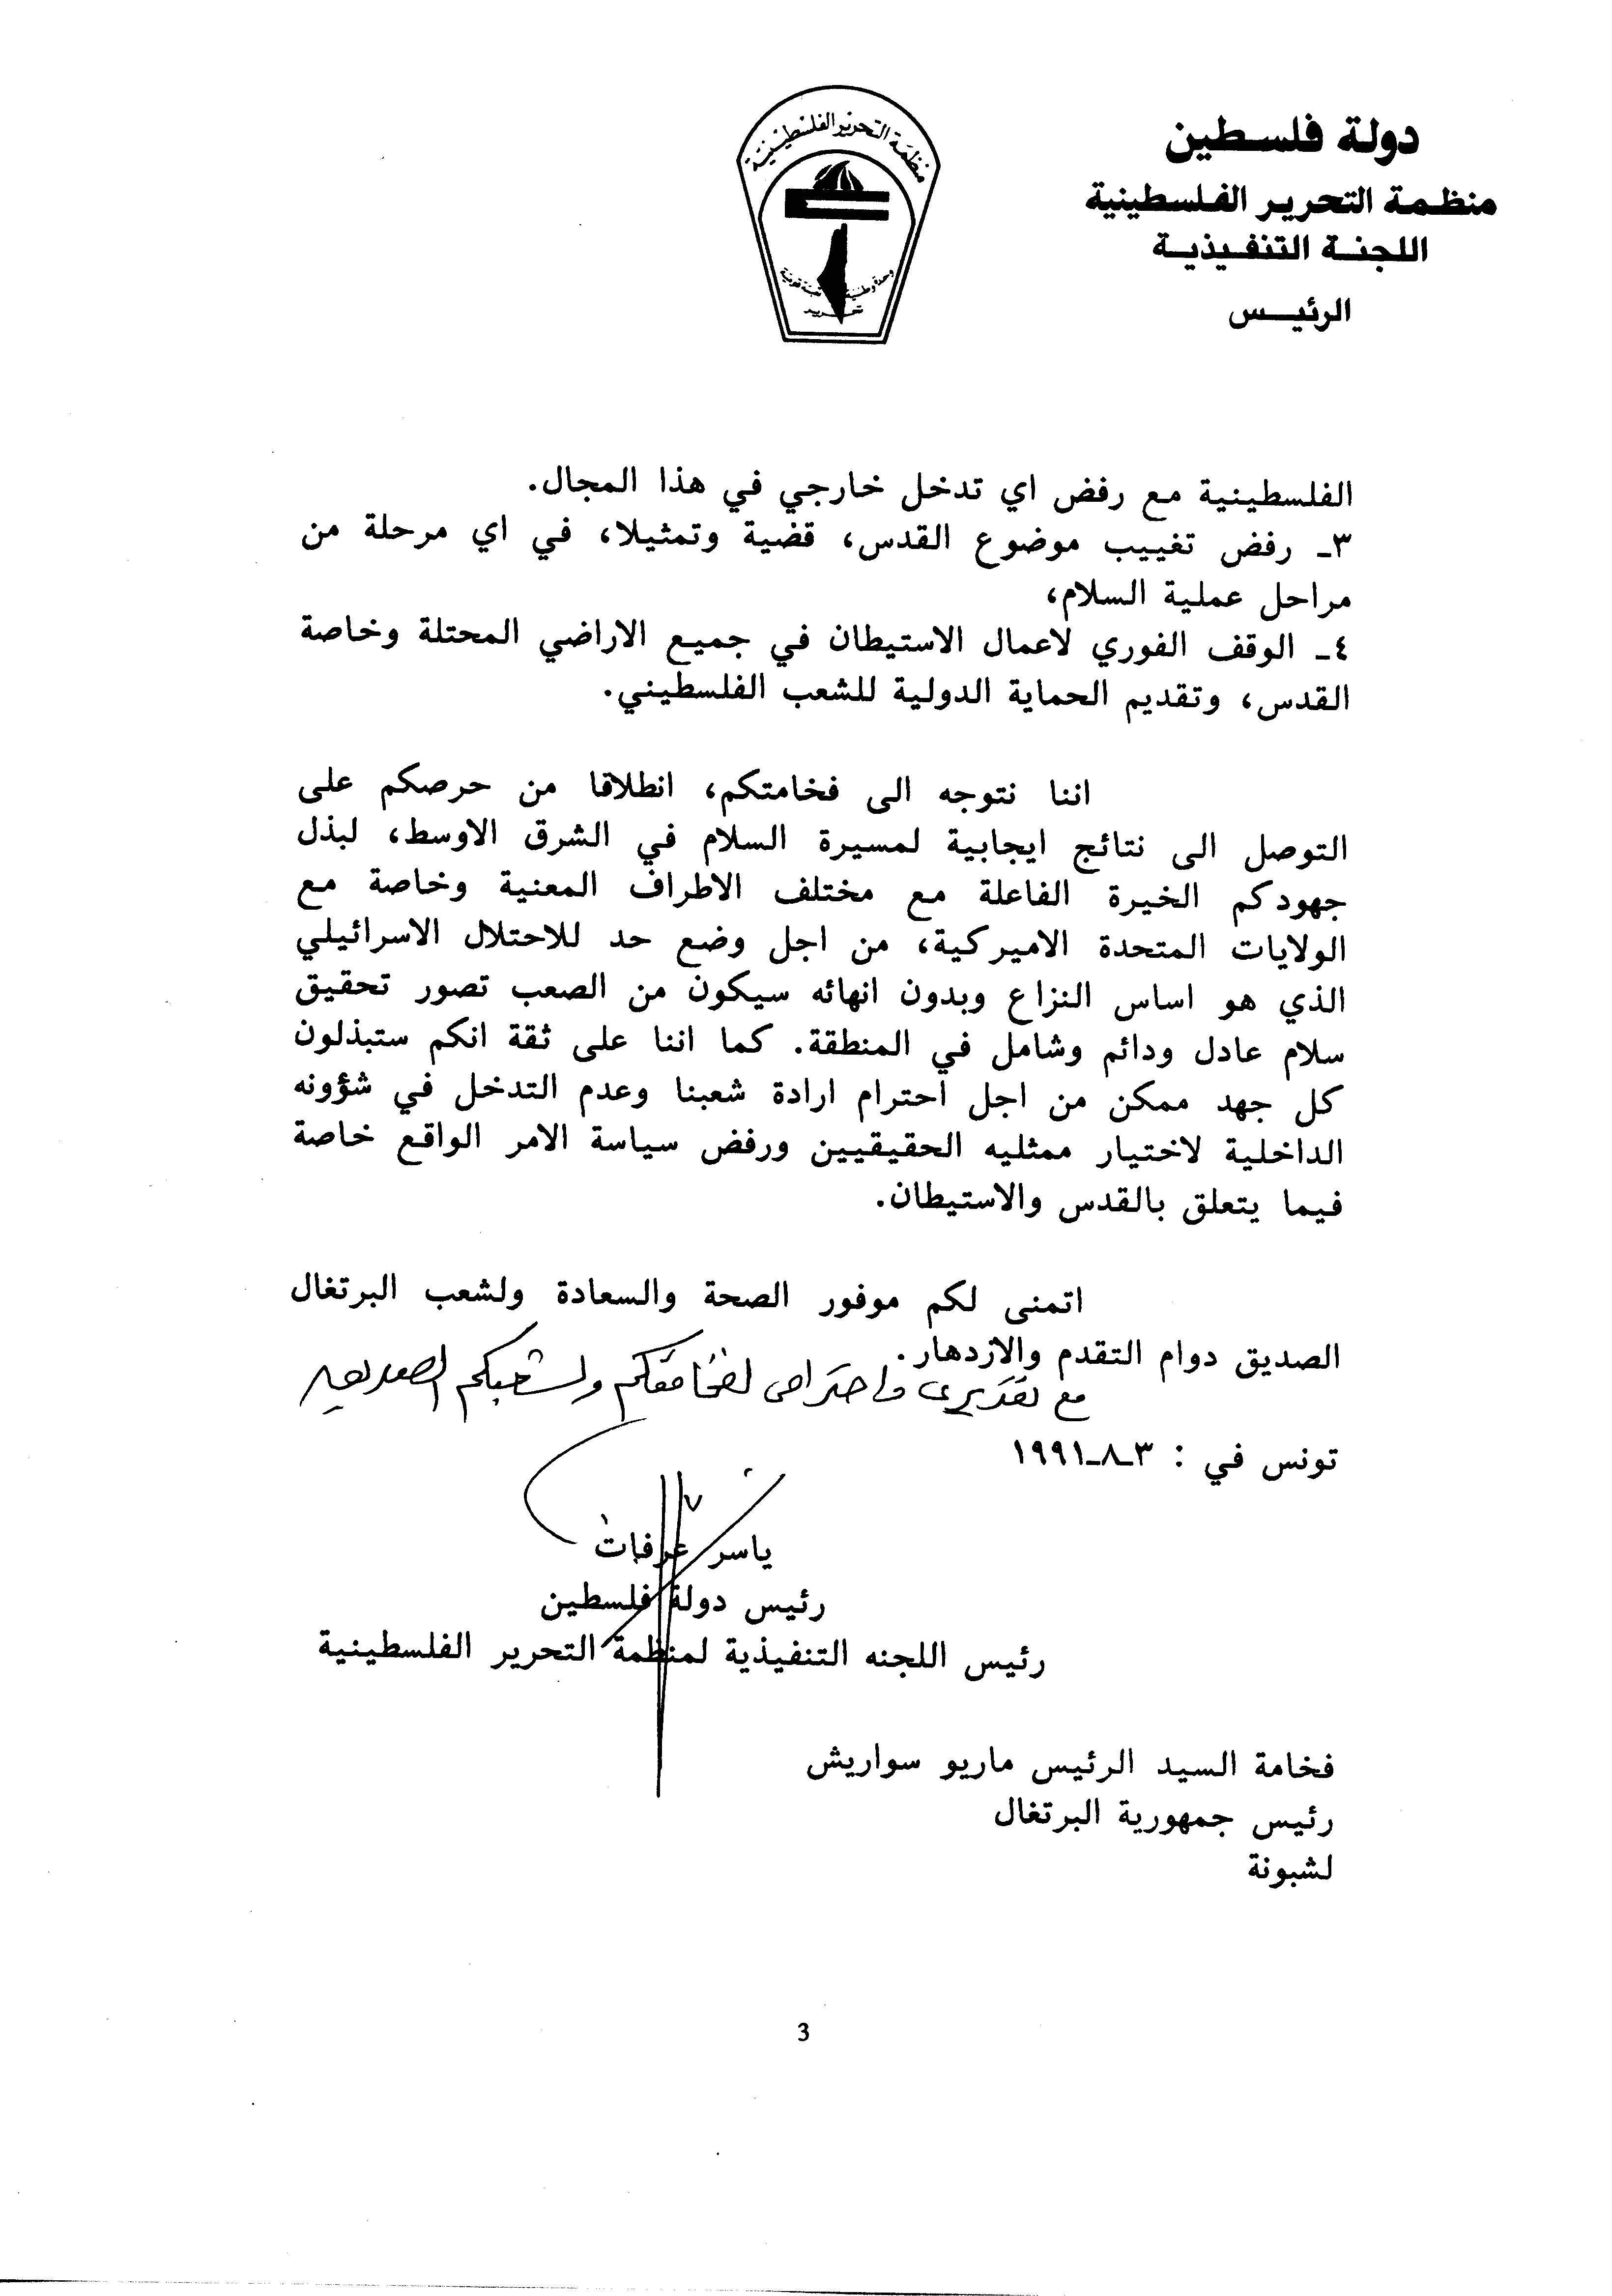 دولة فلسطين
منظمة التحرير الفلسطينية
اللجنة التنفيذية
الرئيس
منظمة التحرير الفلسطينية
وحدة وطنية تعبئة قومية
تحرير
الفلسطينية مع رفض اي تدخل خارجي في هذا المجال.
٣ـ رفض تغييب موضوع القدس، قضية وتمثيلا، في اي مرحلة من
مراحل عملية السلام،
٤ـ الوقف الفوري لاعمال الاستيطان في جميع الاراضي المحتلة وخاصة
القدس، وتقديم الحماية الدولية للشعب الفلسطيني.
اننا نتوجه الى فخامتكم، انطلاقا من حرصكم على
التوصل الى نتائج ايجابية لمسيرة السلام في الشرق الاوسط، لبذل
جهودكم الخيرة الفاعلة مع مختلف الاطراف المعنية وخاصة مع
الولايات المتحدة الاميركية، من اجل وضع حد للاحتلال الاسرائيلي
الذي هو اساس النزاع وبدون انهائه سيكون من الصعب تصور تحقيق
سلام عادل ودائم وشامل في المنطقة. كما اننا على ثقة انكم ستبذلون
كل جهد ممكن من اجل احترام ارادة شعبنا وعدم التدخل في شؤونه
الداخلية لاختيار ممثليه الحقيقيين ورفض سياسة الامر الواقع خاصة
فيما يتعلق بالقدس والاستيطان.
اتمنى لكم موفور الصحة والسعادة ولشعب البرتغال
الصديق دوام التقدم والازدهار.
مع تقديري واحترامي لفخامتكم ولشعبكم الصديق
تونس في : ٣ـ٨ـ١٩٩١
ياسر عرفات
رئيس دولة فلسطين
رئيس اللجنه التنفيذية لمنظمة التحرير الفلسطينية
فخامة السيد الرئيس ماريو سواريش
رئيس جمهورية البرتغال
لشبونة
3